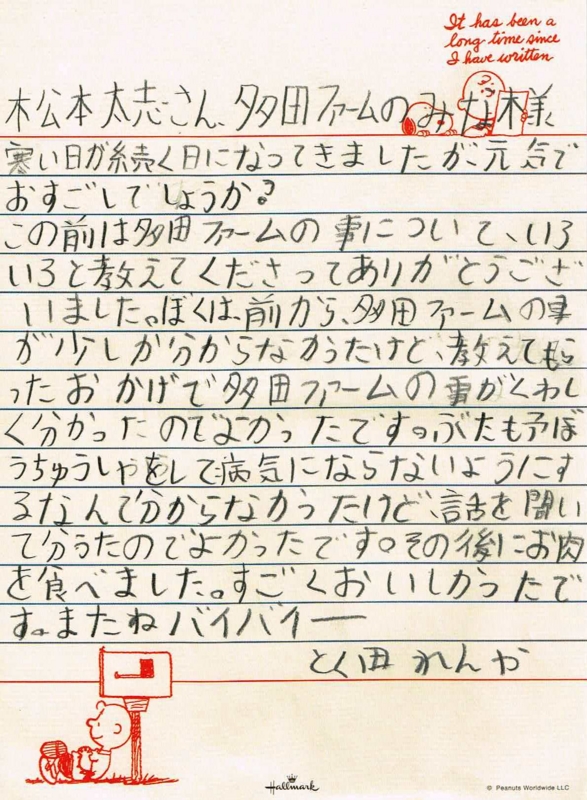 It has been a
long time since
I have written
松本太志さん、多田ファームのみな様
寒い日が続く日になってきましたが、元気で
おすごしでしょうか?
この前は多田ファームの事について、いろ
いろと教えてくださってありがとうござ
いました。ぼくは、前から、多田ファームの事
が少しか分からなかったけど、教えてもら
ったおかげで多田ファームの事がくわし
く分かったのでよかったです。ぶたも予ぼ
うちゅうしゃをして病気にならないようにす
るなんて分からなかったけど、話を聞い
て分うたのでよかったです。その後にお肉
を食べました。すごくおいしかったで
す。またねバイバイー
とく田 れんか
Hallmark
© Peanuts Worldwide LLC